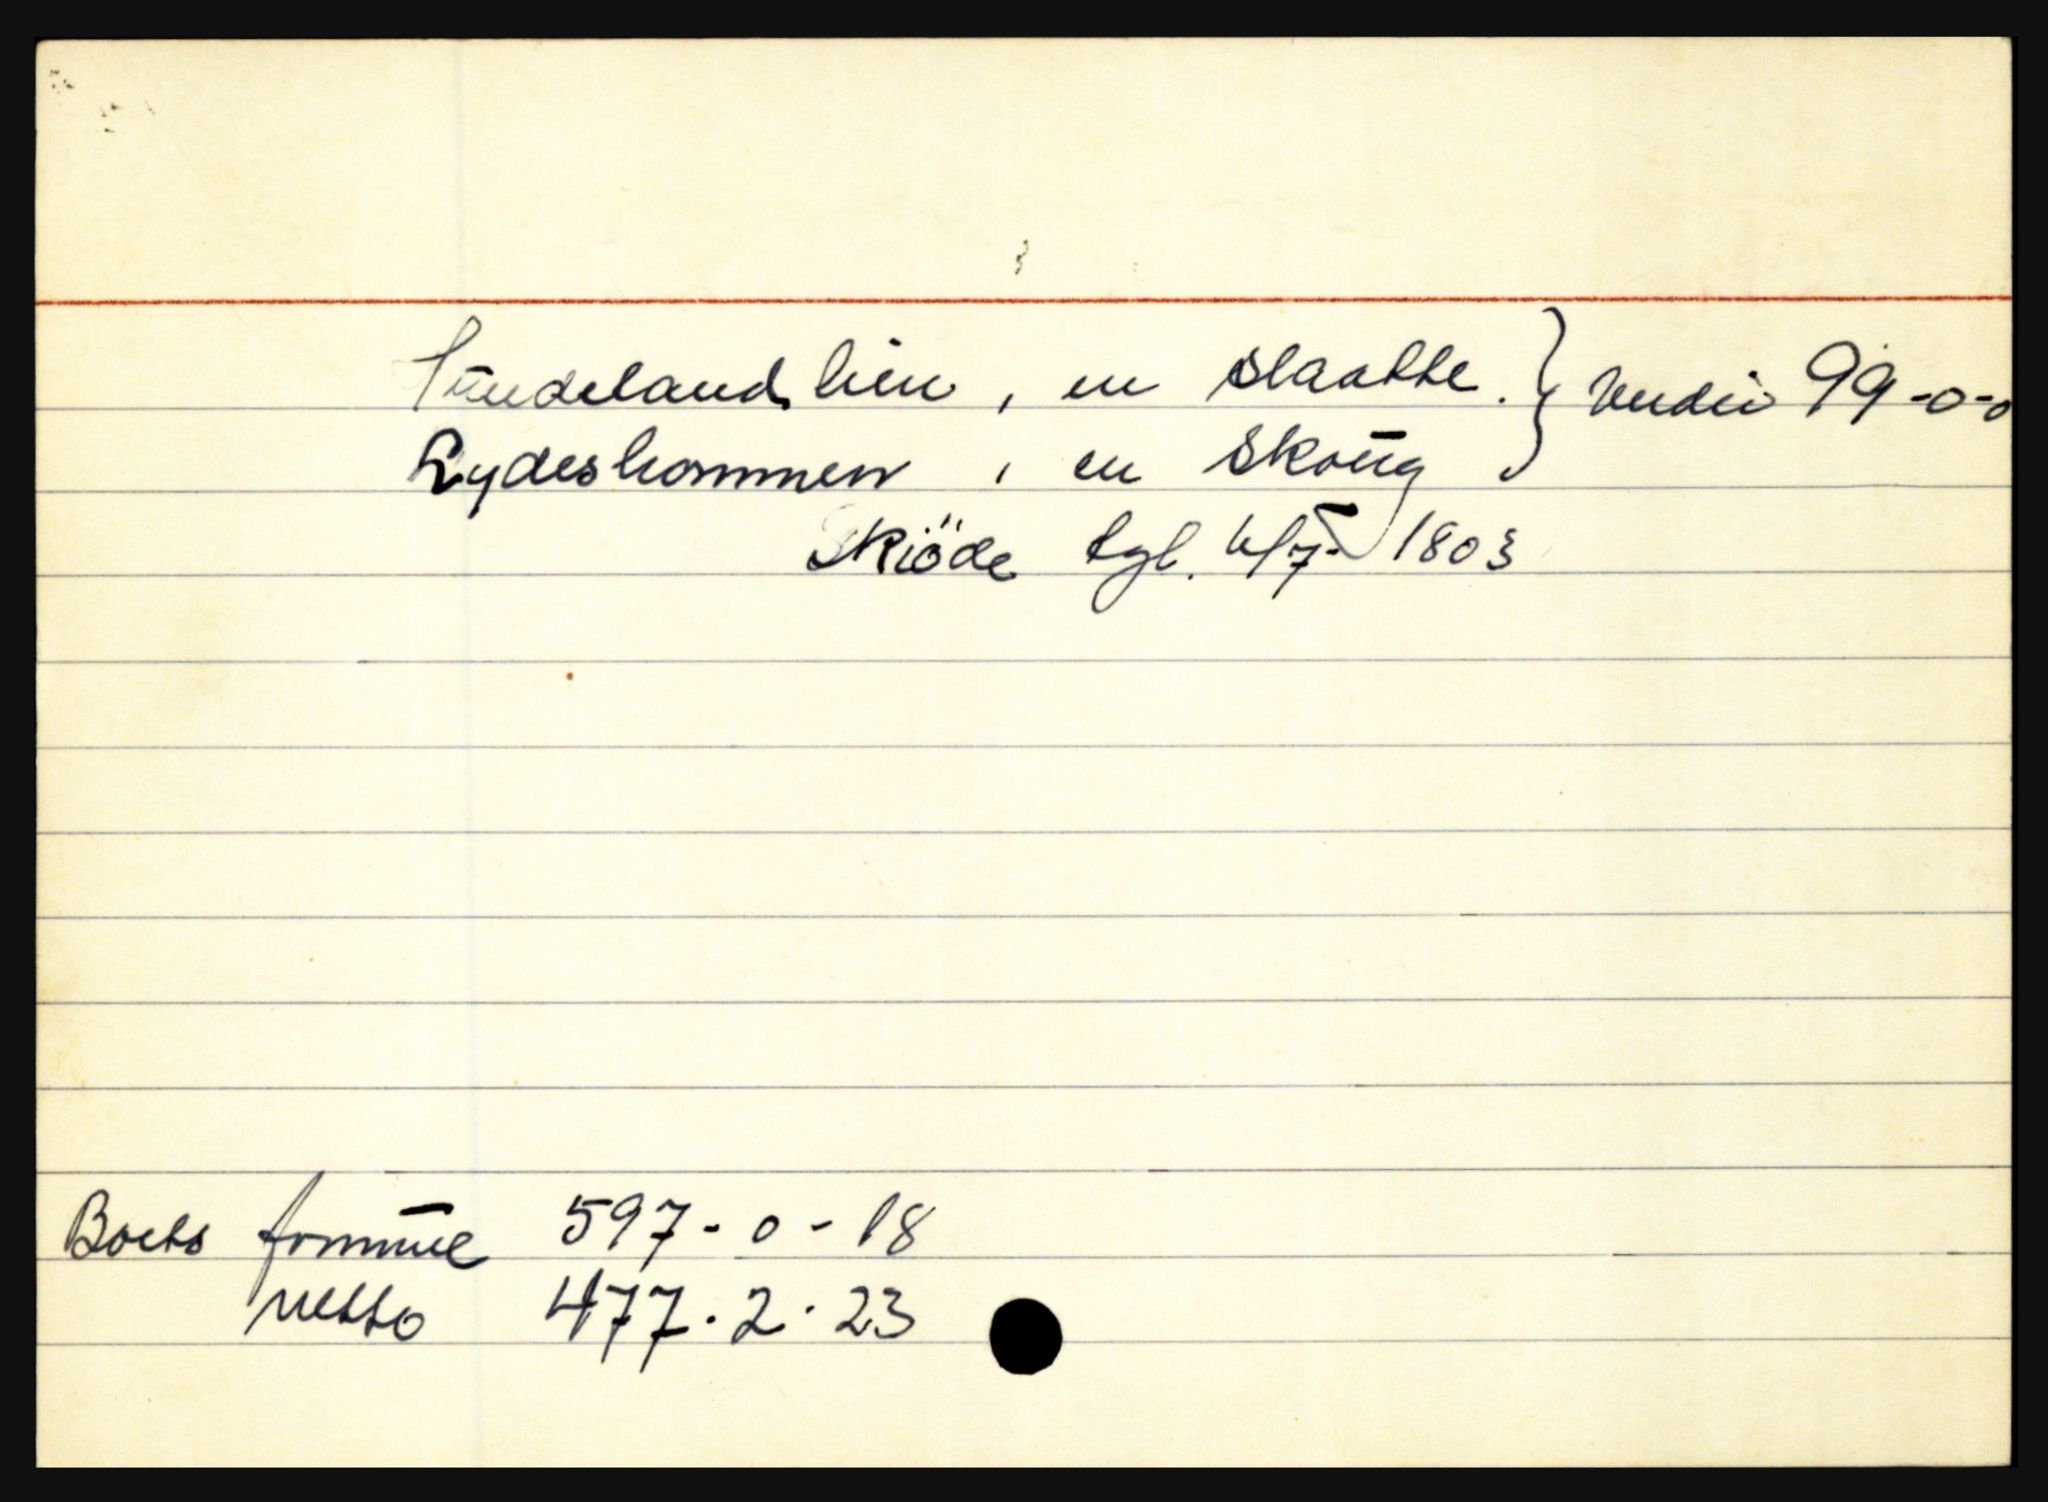 Sündeland lien, en slaatte. } Verdi 99-0-0
Rydeshommen, en skoüg
Skiöde tgl. 4/7- 1803
Boets formüe 597-0-18
netto 477.2.23